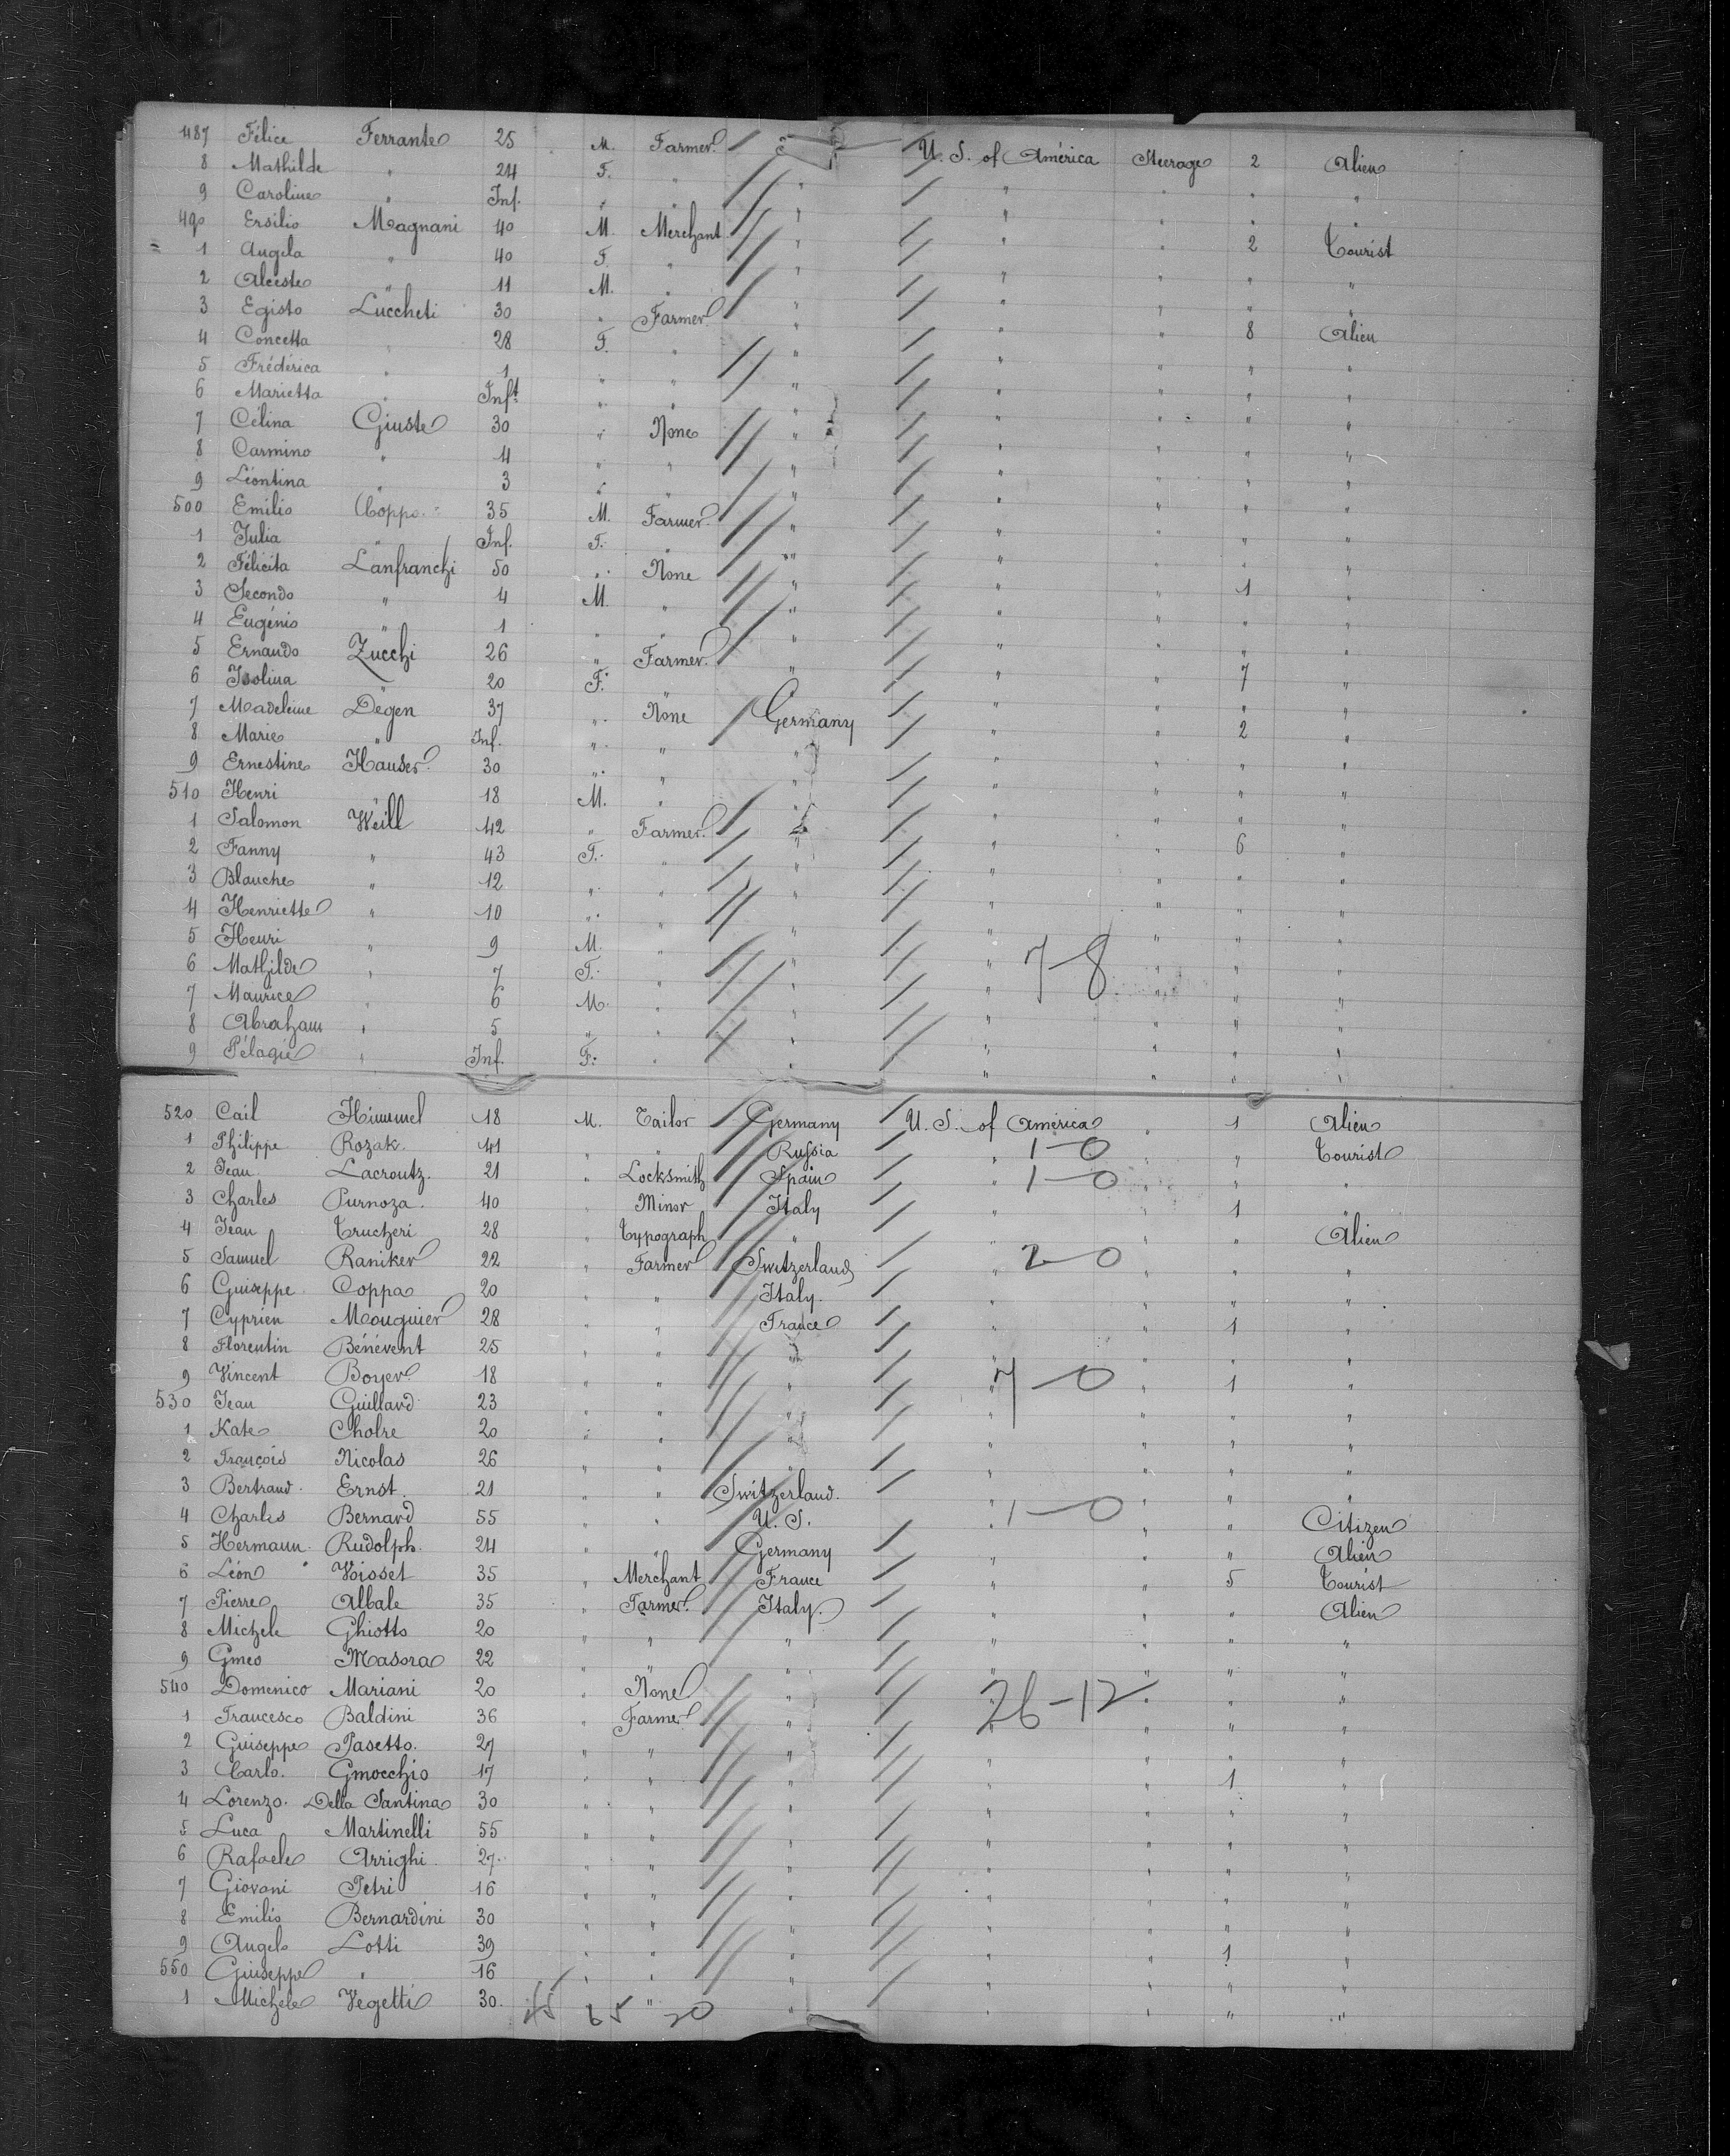 487 Félice Ferrante 25 M. Farmer U. S. of América Steerage 2 Alien
8 Mathilde " 24 F. " " " " " "
9 Caroline " Inf. " " " " " "
490 Ersilio Magnani 40 M. Merchant " " " 2 Tourist
1 Angela " 40 F. " " " " " "
2 Alceste " 11 M. " " " " " "
3 Egisto Luccheti 30 " Farmer " " " 8 Alien
4 Concetta " 28 F. " " " " " "
5 Frédérica " 1 " " " " " " "
6 Marietta " Inft " " " " " " "
7 Célina Giuste 30 " None " " " " "
8 Carmino " 4 " " " " " " "
9 Léontina " 3 " " " " " " "
500 Emilio Coppo 35 M. Farmer " " " " "
1 Julia " Inf. F. " " " " " "
2 Félicita Lanfranchi 50 " None " " " 1 "
3 Secondo " 4 M. " " " " " "
4 Eugénio " 1 " " " " " " "
5 Ernando Zucchi 26 " Farmer " " " 7 "
6 Isolina " 20 F. " " " " " "
7 Madeleine Degen 37 " None Germany " " 2 "
8 Marie " Inf. " " " " " " "
9 Ernestine Hauser 30 " " " " " " "
510 Henri " 18 M. " " " " " "
1 Salomon Weill 42 " Farmer " " " 6 "
2 Fanny " 43 F. " " " " " "
3 Blanche " 12 " " " " " " "
4 Henriette " 10 " " " " " " "
5 Henri " 9 M. " " " " " "
6 Mathilde " 7 F. " " " 7-8 " " "
7 Maurice " 6 M. " " " " " "
8 Abraham " 5 " " " " " " "
9 Pélagie " Inf. F. " " " " " "
520 Cail Himmel 18 M. Tailor Germany U. S. of América " 1 Alien
1 Philippe Rozak 41 " " Russia " 1-0 " " Tourist
2 Jean Lacroutz. 21 " Locksmith Spain " 1-0 " " "
3 Charles Purnoza. 40 " Minor Italy " " 1 "
4 Jean Trucheri 28 " Typograph " " " " Alien
5 Samuel Raniker 22 " Farmer Switzerland " 2-0 " " "
6 Guiseppe Coppa 20 " " Italy. " " " "
7 Cyprien Mouguier 28 " " France " " 1 "
8 Florentin Bénévent 25 " " " " " " "
9 Vincent Boyer 18 " " " " 7-0 " 1 "
530 Jean Guillard 23 " " " " " " "
1 Kate Cholre 20 " " " " " " "
2 François Nicolas 26 " " " " " " "
3 Bertrand Ernst. 21 " " Switzerland. " " " "
4 Charles Bernard 55 " " U. S. " 1-0 " " Citizen
5 Hermann Rudolph. 24 " " Germany " " " Alien
6 Léon Voisset 35 " Merchant France " " 5 Tourist
7 Pierre Albale 35 " Farmer Italy. " " " Alien
8 Michele Ghiotto 20 " " " " " " "
9 Gmeo Masora 22 " " " " " " "
540 Domenico Mariani 20 " None " " 26-12 " " "
1 Francesco Baldini 36 " Farmer " " " " "
2 Guiseppe Pasetto. 27 " " " " " " "
3 Carlo. Gmocchio 17 " " " " " 1 "
4 Lorenzo. Della Santina 30 " " " " " " "
5 Luca Martinelli 55 " " " " " " "
6 Rafaele Arrighi 27 " " " " " " "
7 Giovani Petri 16 " " " " " " "
8 Emilio Bernardini 30 " " " " " " "
9 Angelo Lotti 39 " " " " " 1 "
550 Guiseppe " 16 " " " " " " "
1 Michele Vegetti 30. " " " " " "
65 20